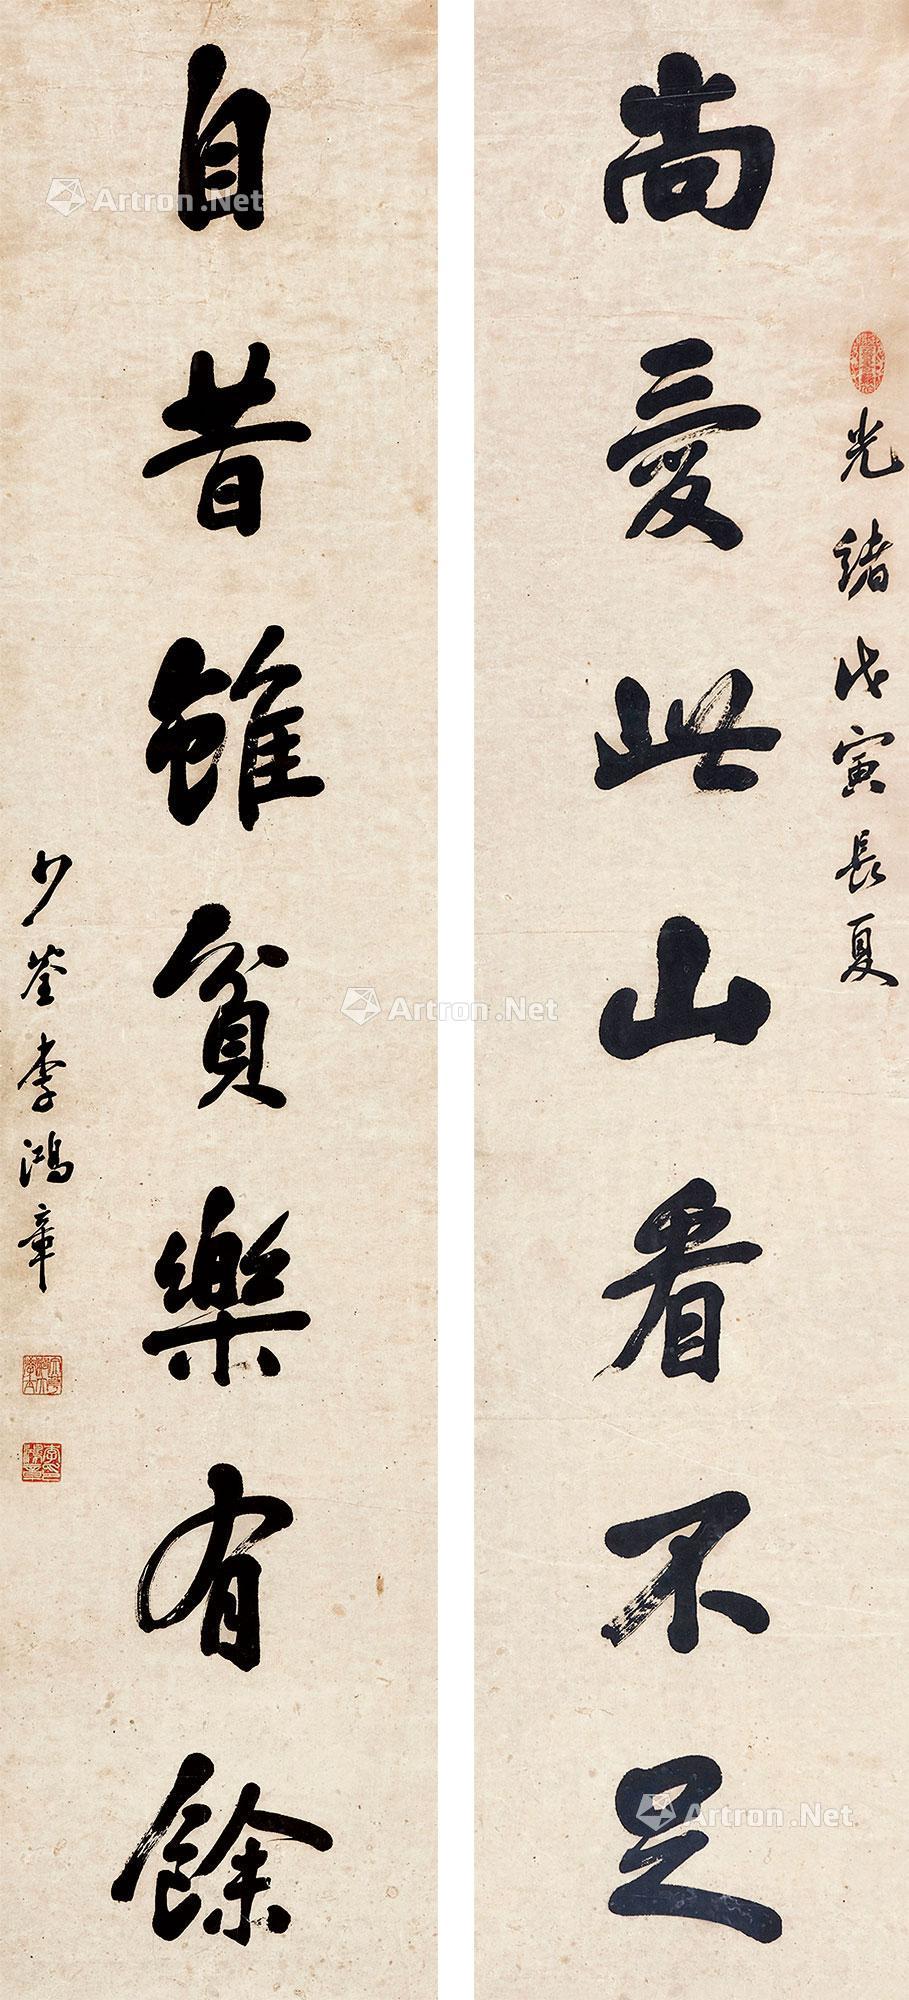 光緒戊寅長夏
尚愛此山看不足
自昔雖貧樂有餘
少荃李鴻章
Artron.Net
Artron.Net
Artron.Net